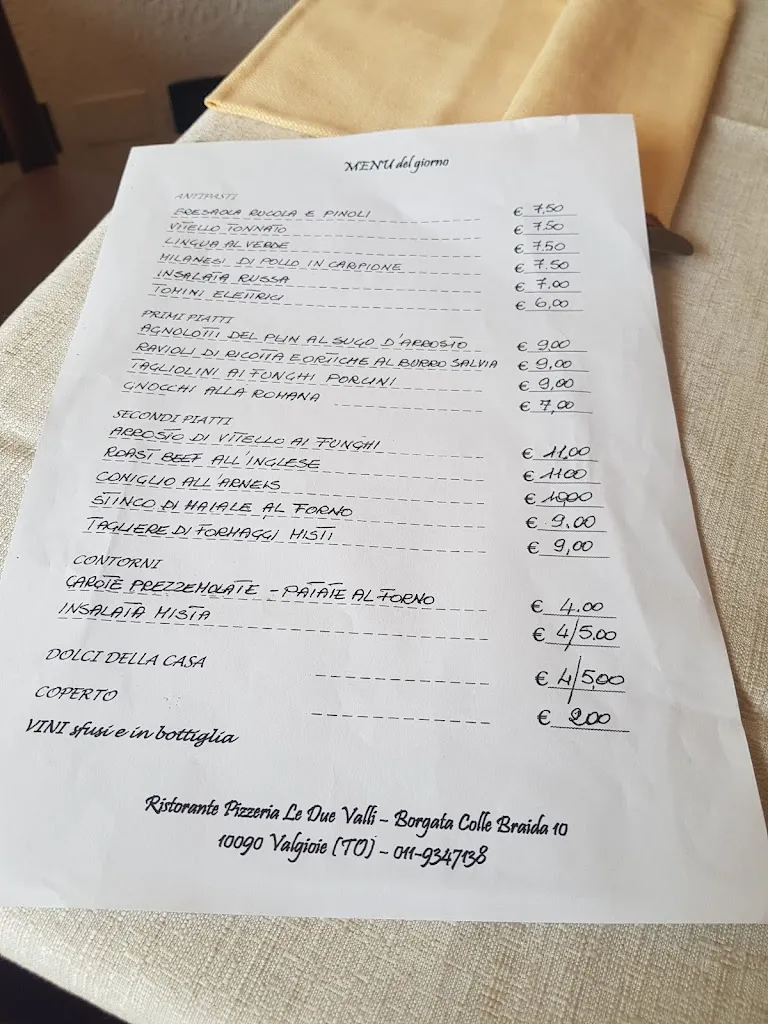 MENU del giorno
ANTIPASTI
BRESAOLA RUCOLA E PINOLI € 7,50
VITELLO TONNATO € 7.50
LINGUA AL VERDE € 7,50
MILANESI DI POLLO IN CARPIONE € 7.50
INSALATA RUSSA € 7.00
TOMINI ELETTRICI € 6,00
PRIMI PIATTI
AGNOLOTTI DEL PLIN AL SUGO D'ARROSTO € 9,00
RAVIOLI DI RICOTTA E ORTICHE AL BURRO SALVIA € 9,00
TAGLIOLINI AI FUNGHI PORCINI € 9,00
GNOCCHI ALLA ROMANA € 7,00
SECONDI PIATTI
ARROSTO DI VITELLO AI FUNGHI € 11,00
ROAST BEEF ALL'INGLESE € 11.00
CONIGLIO ALL'ARNEIS € 10,00
STINCO DI MAIALE AL FORNO € 9.00
TAGLIERE DI FORMAGGI MISTI € 9,00
CONTORNI
CAROTE PREZZEMOLATE - PATATE AL FORNO € 4.00
INSALATA MISTA € 4/5.00
DOLCI DELLA CASA € 4/5,00
COPERTO € 2.00
VINI sfusi e in bottiglia
Ristorante Pizzeria Le Due Valli – Borgata Colle Braida 10
10090 Valgioie (TO) – 011-9347138